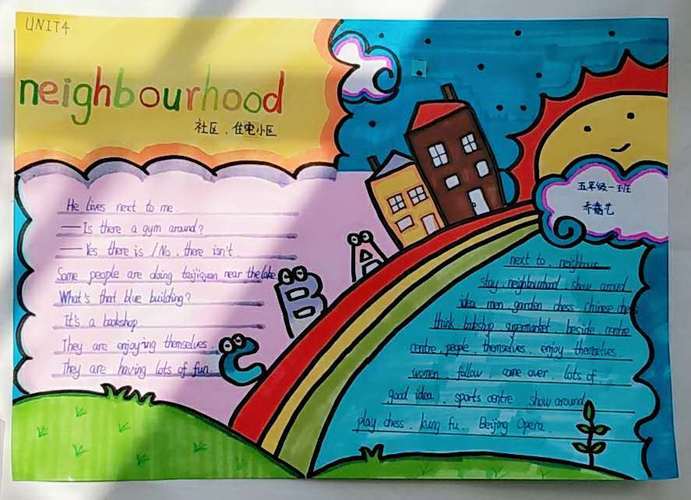 UNIT4
neighbourhood
社区、住宅小区
He lives next to me.
—Is there a gym around?
—Yes there is /No, there isn't.
Some people are doing taijiquan near the lake
What's that blue building?
It's a bookshop
They are enjoying themselves.
They are having lots of fun
A
B
C
五年级一班
next to . neighbour
stay neighbourhood show around
idea men garden chess Chinese chess
think bookshop supermarket beside centre
centre people themselves enjoy themselves
women follow come over lots of
good idea . sports centre . show around
play chess . kung fu . Beijing Opera .